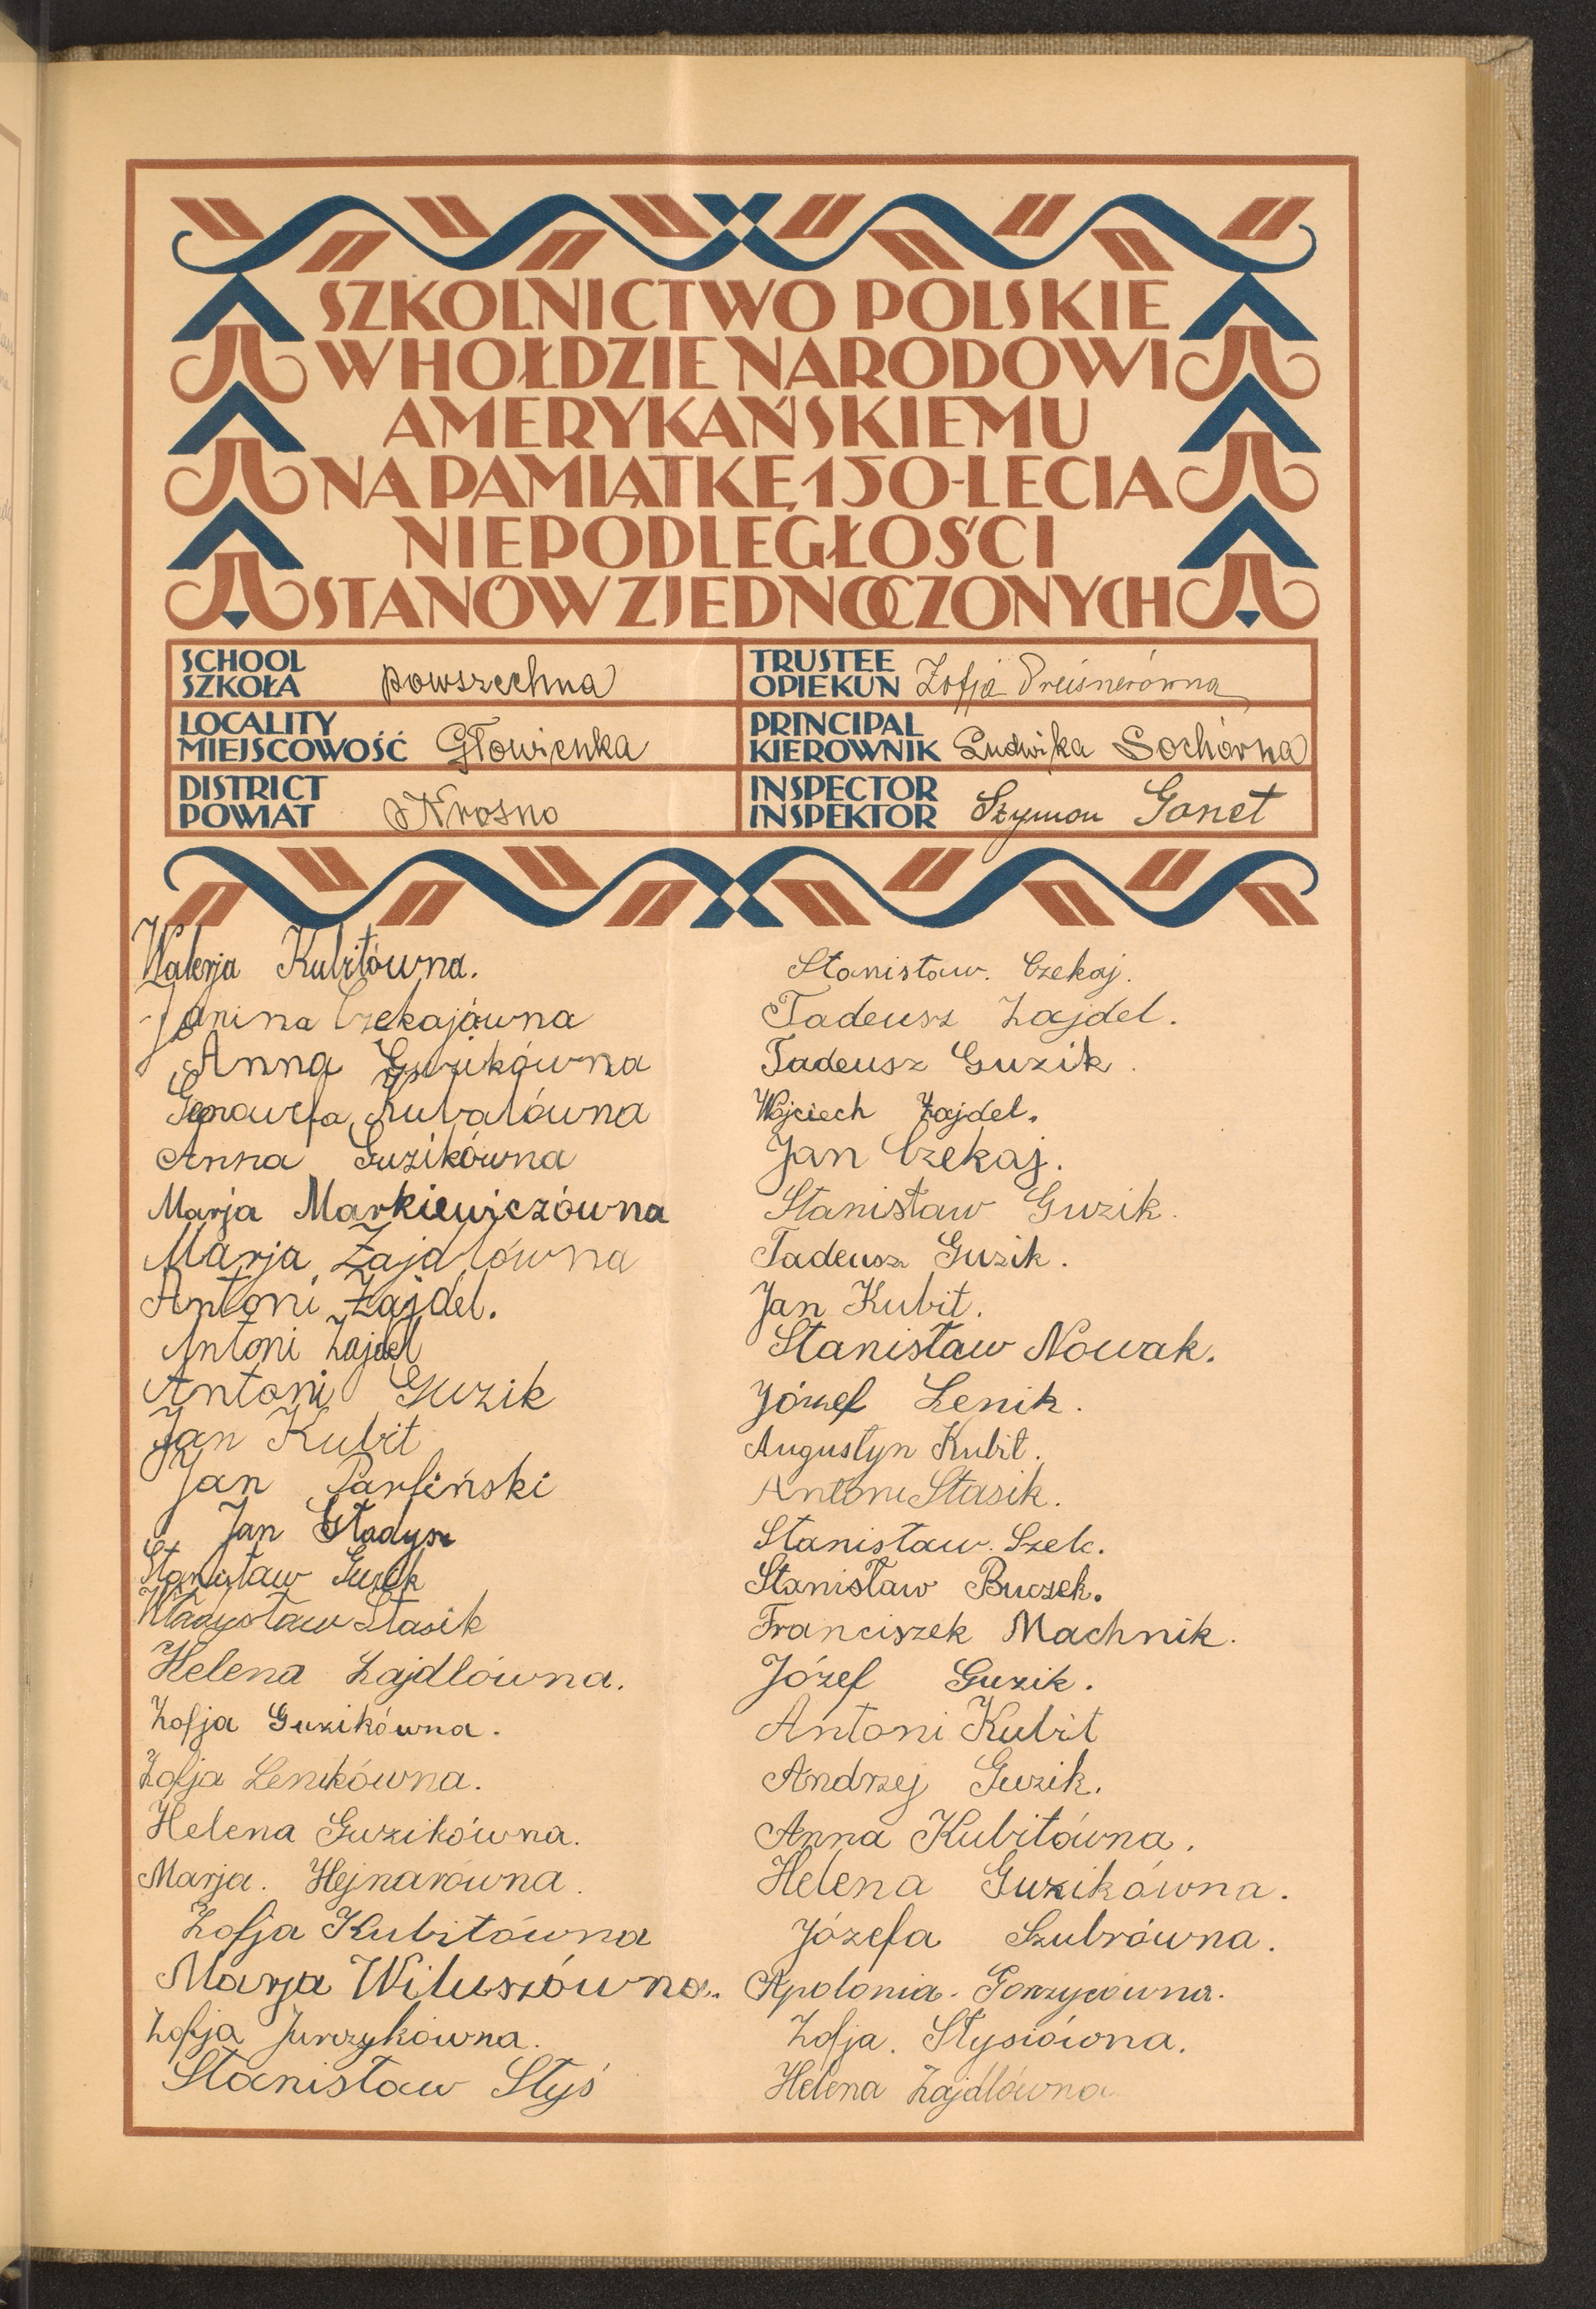 SZKOLNICTWO POLSKIE
W HOŁDZIE NARODOWI
AMERYKAŃSKIEMU
NA PAMIĄTKĘ 150-LECIA
NIEPODLEGŁOŚCI
STANÓW ZJEDNOCZONYCH
SCHOOL
SZKOŁA powszechna
LOCALITY
MIEJSCOWOŚĆ Głowienka
DISTRICT
POWIAT Krosno
TRUSTEE
OPIEKUN Zofja Preisnerówna
PRINCIPAL
KIEROWNIK Ludwika Sochórna
INSPECTOR
INSPEKTOR Szymon Gonet
Walerja Kubitówna.
Janina Czekajówna
Anna Guzikówna
Genowefa
Anna Guzikówna
Marja Markiewiczówna
Marja Zajdlówna
Antoni Zajdel.
Antoni Zajdel
Antoni Guzik
Jan Kubit
Jan Parfiński
Jan Gładysz
Stanisław Guzik
Władysław Stasik
Helena Zajdlówna.
Zofja Guzikówna.
Zofja Lenikówna.
Helena Guzikówna.
Marja. Hejnarówna.
Zofja Kubitówna
Marja Wiluszówna.
Zofja Jurczykówna.
Stanisław Styś
Stanisław. Czekaj.
Tadeusz Zajdel.
Tadeusz Guzik.
Wojciech Zajdel.
Jan Czekaj.
Stanisław Guzik.
Tadeusz Guzik.
Jan Kubit.
Stanisław Nowak.
Józef Lenik.
Augustyn Kubit.
Antoni Stasik.
Stanisław. Szelc.
Stanisław Buczek.
Franciszek Machnik.
Józef Guzik.
Antoni Kubit
Andrzej Guzik.
Anna Kubitówna.
Helena Guzikówna.
Józefa Szubrówna.
Apolonia. Gorzycówna.
Zofja. Stysiówna.
Helena Zajdlówna